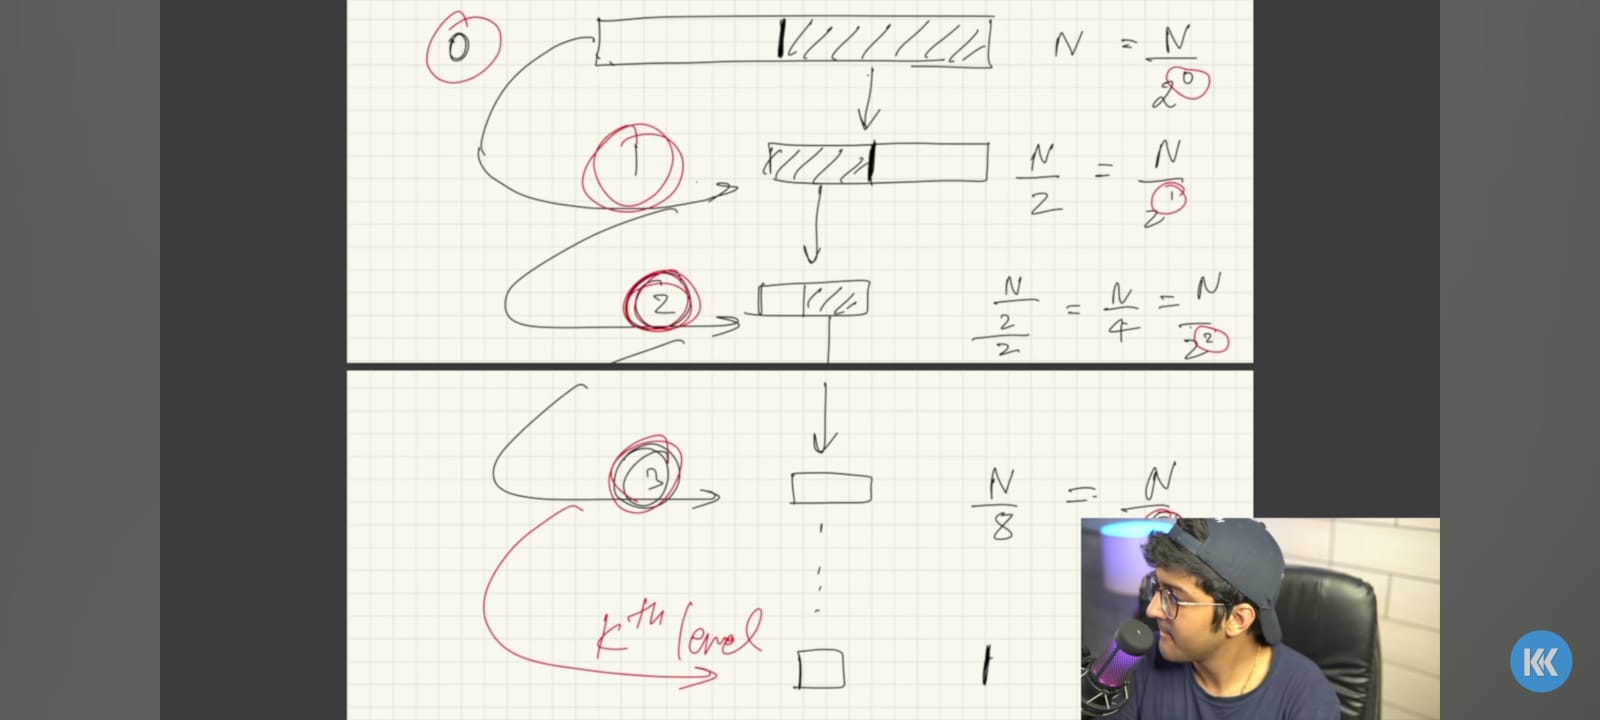 0 N = N/2^0
1 N/2 = N/2^1
2 N/2/2 = N/4 = N/2^2
3 N/8 = N
Kth level 1
KK